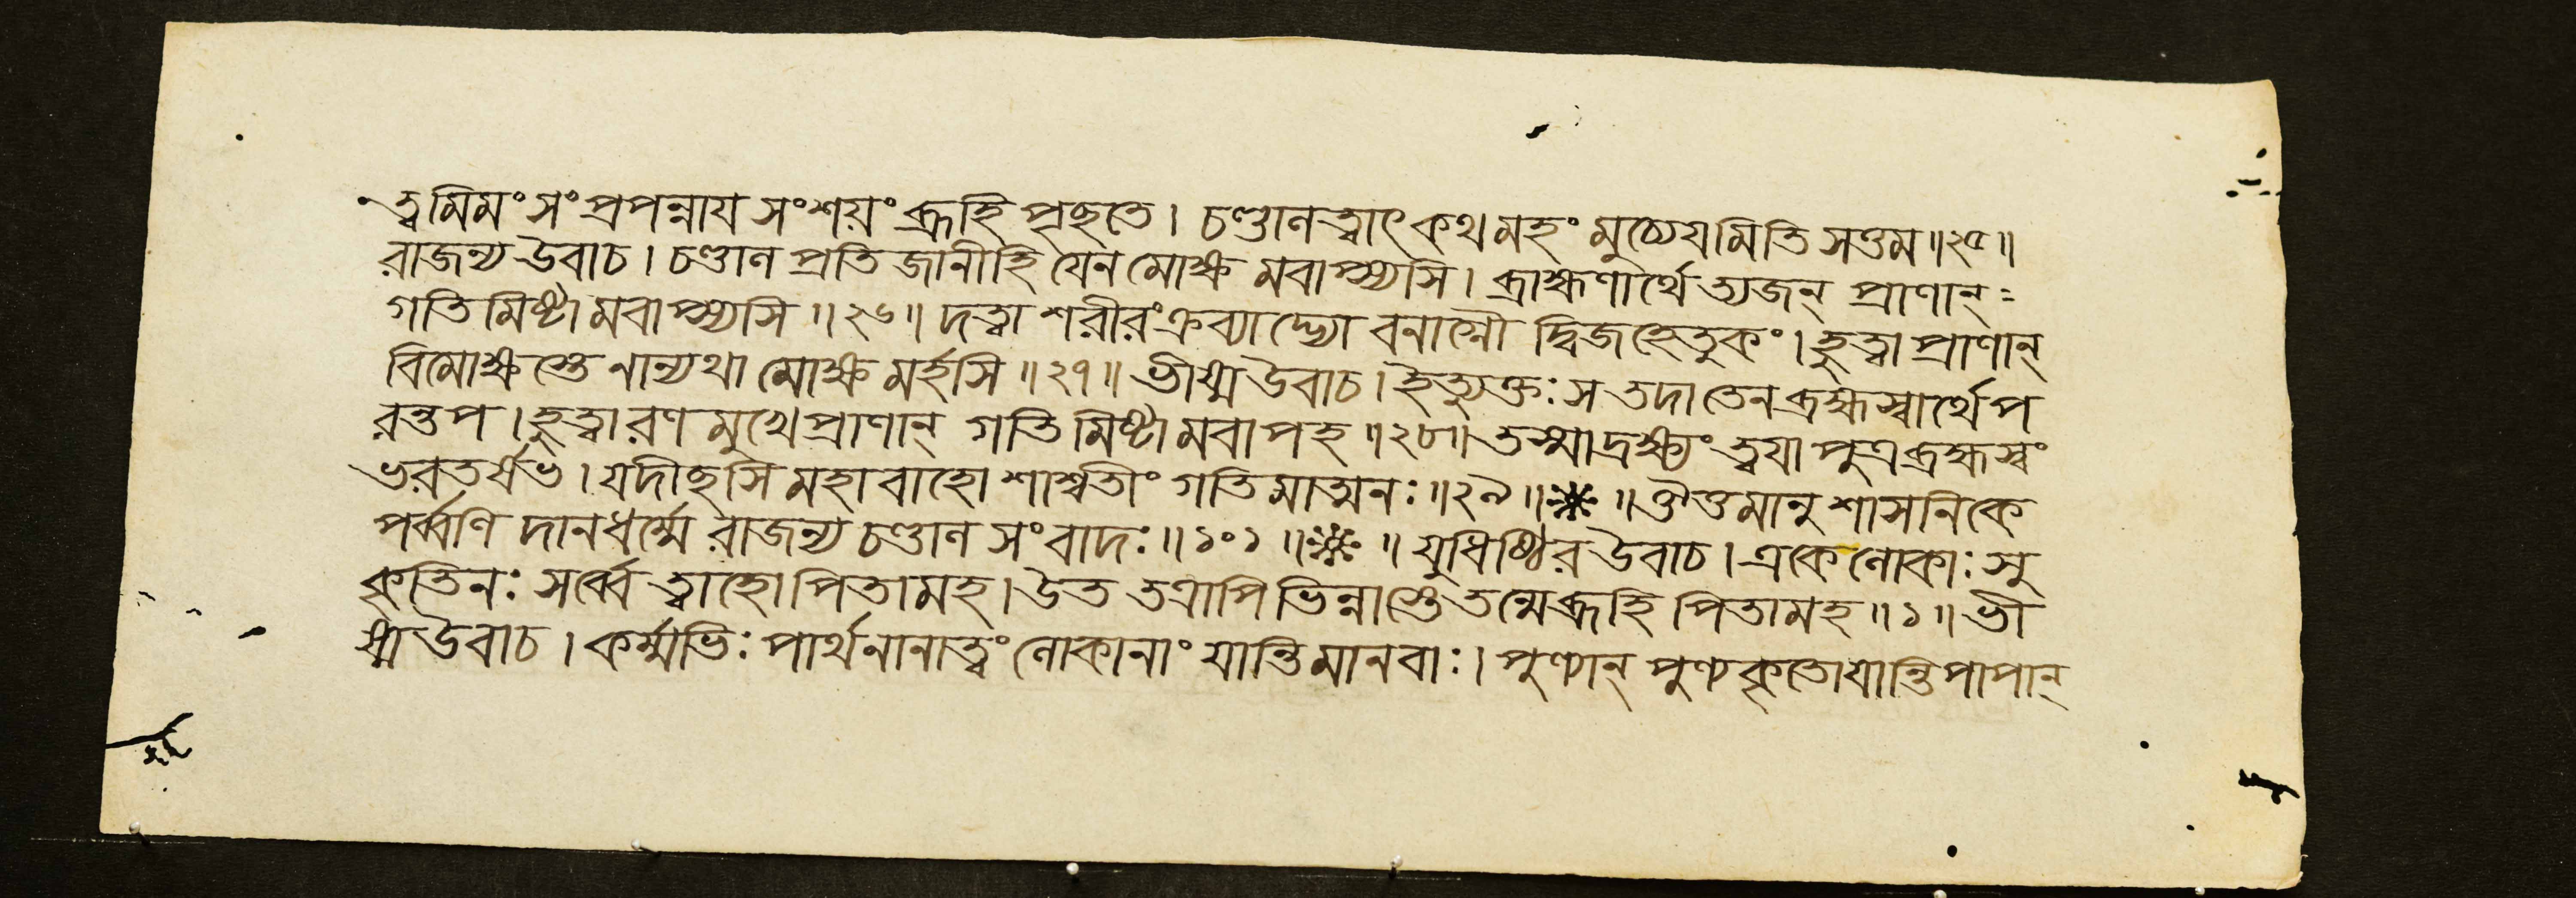 ত্বমিমং সংপ্রপন্নায সংশয়ং ব্রূহি পৃছতে। চণ্ডালত্বাৎ কথমহং মুচ্যেযমিতি সত্তম॥২৫॥
রাজন্য উবাচ। চণ্ডাল প্রতিজানীহি যেন মোক্ষমবাপ্স্যসি। ব্রাহ্মণার্থে ত্যজন্ প্রাণান্=
গতিমিষ্টামবাপ্স্যসি॥২৬॥ দত্বা শরীরং ক্রব্যাদ্ভ্যো বনাগ্নৌ দ্বিজহেতুকং। হুত্বা প্রাণান্
বিমোক্ষস্তে নান্যথা মোক্ষমর্হসি॥২৭॥ ভীষ্ম উবাচ। ইত্যুক্তঃ স তদা তেন ব্রহ্মস্বার্থে প
রন্তপ। হুত্বা রণমুখে প্রাণান্ গতিমিষ্টামবাপ হ॥২৮॥ তস্মাদ্রক্ষ্যং ত্বযা পুত্র ব্রহ্মস্বং
ভরতর্ষভ। যদীছসি মহাবাহো শাশ্বতীং গতিমাত্মনঃ॥২৯॥ ॥ ঔত্তমানুশাসনিকে
পর্ব্বণি দানধর্ম্মে রাজন্য চণ্ডাল সংবাদঃ॥১০১॥ ॥ যুধিষ্ঠির উবাচ। একে লোকাঃ সু
কৃতিনঃ সর্ব্বে ত্বাহো পিতামহ। উত তত্রাপি ভিন্নাস্তে তন্মে ব্রূহি পিতামহ॥১॥ ভী
ষ্ম উবাচ। কর্ম্মভিঃ পার্থ নানাত্বং লোকানাং যান্তি মানবাঃ। পুণ্যান্ পুণ্যকৃতো যান্তি পাপান্